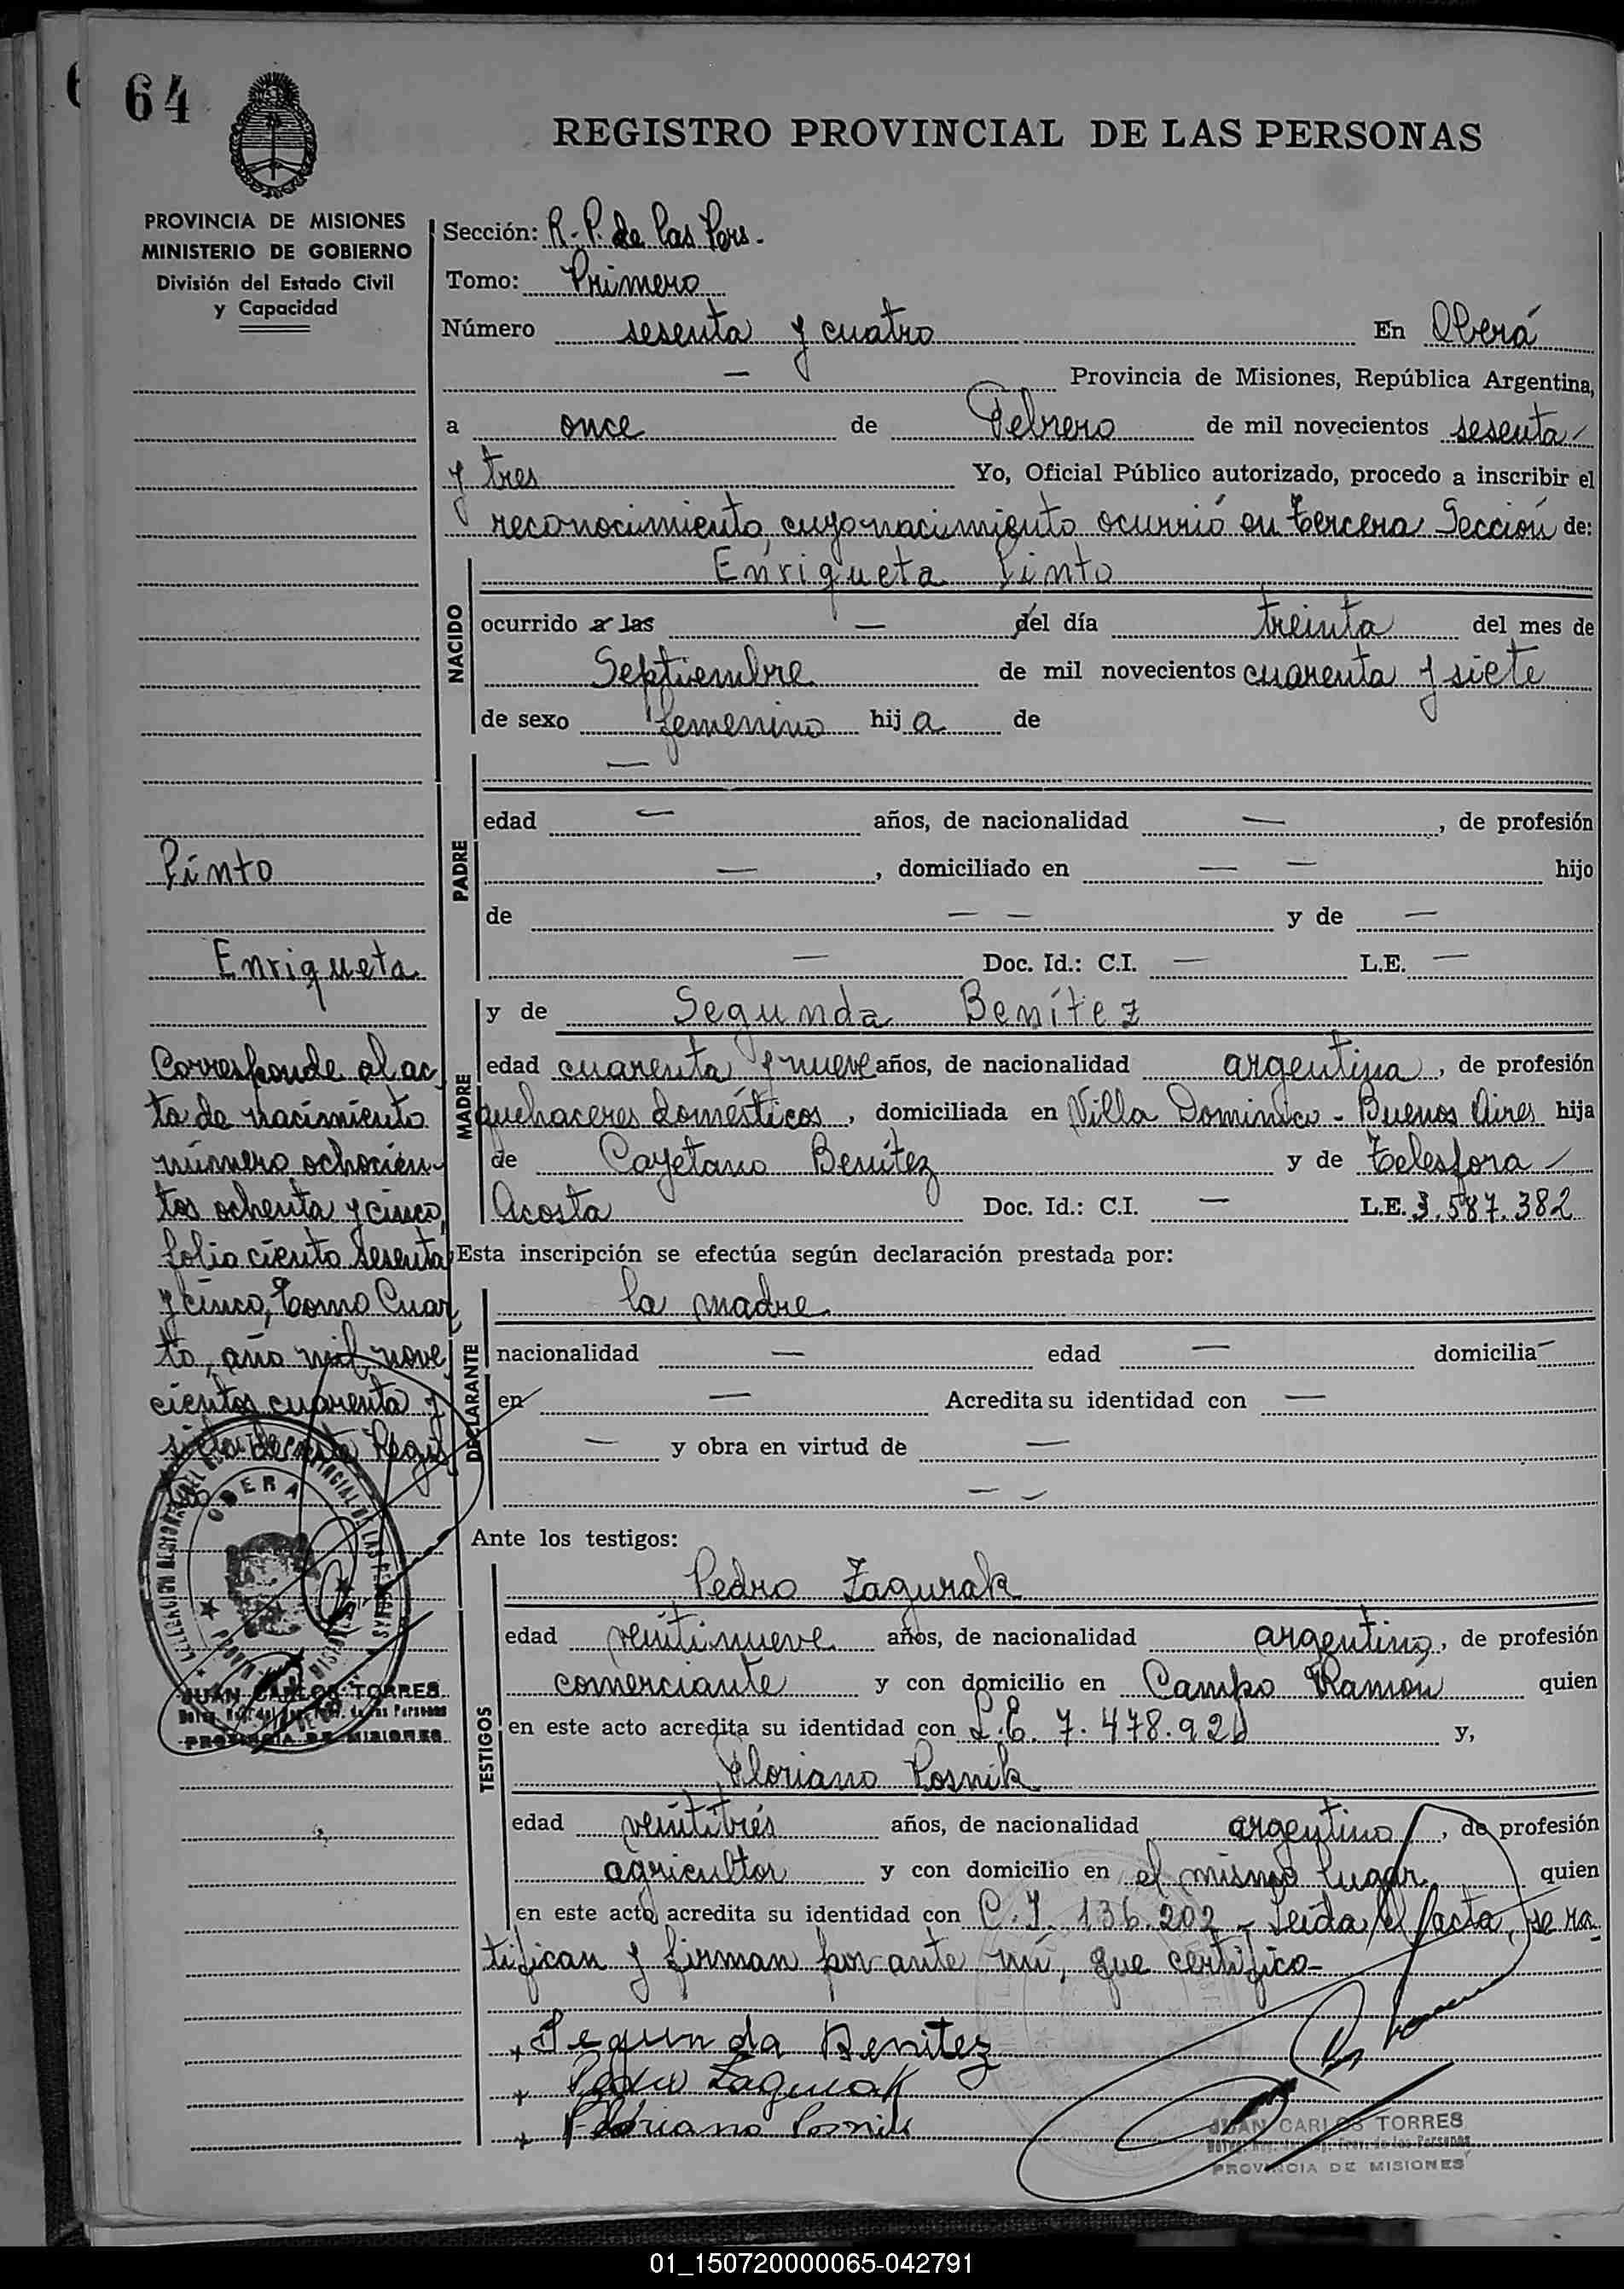 64
REGISTRO PROVINCIAL DE LAS PERSONAS
PROVINCIA DE MISIONES
MINISTERIO DE GOBIERNO
División del Estado Civil
y Capacidad
Sección: R. P. de las Pers.
Tomo: Primero
Número sesenta y cuatro En Oberá
— Provincia de Misiones, República Argentina,
a once de Febrero de mil novecientos sesenta
y tres Yo, Oficial Público autorizado, procedo a inscribir el
reconocimiento, cuyo nacimiento ocurrió en tercera Sección de:
NACIDO
Enriqueta Pinto
ocurrido a las — del día treinta del mes de
Septiembre de mil novecientos cuarenta y siete
de sexo femenino hija de
PADRE
—
edad — años, de nacionalidad —, de profesión
—, domiciliado en — — hijo
de — — y de —
— Doc. Id.: C.I. — L.E. —
MADRE
y de Segunda Benítez
edad cuarenta y nueve años, de nacionalidad argentina, de profesión
quehaceres domésticos, domiciliada en Villa Dominico - Buenos Aires hija
de Cayetano Benítez y de Telesfora
Acosta Doc. Id.: C.I. — L.E. 3.587.382
Esta inscripción se efectúa según declaración prestada por:
DECLARANTE
la madre
nacionalidad — edad — domicilia—
en — Acredita su identidad con —
— y obra en virtud de —
— —
Ante los testigos:
TESTIGOS
Pedro Zagurak
edad veintinueve años, de nacionalidad argentino, de profesión
comerciante y con domicilio en Campo Ramón quien
en este acto acredita su identidad con L.E. 7.478.92 y,
Floriano Posnik
edad veintitrés años, de nacionalidad argentino, de profesión
agricultor y con domicilio en el mismo lugar quien
en este acto acredita su identidad con C.I. 136.202 - Leída el acta, se ra
tifican y firman por ante mí, que certifico-
+ Segunda Benitez
+ Pedro Zagurak
+ Floriano Posnik
JUAN CARLOS TORRES
PROVINCIA DE MISIONES
Pinto
Enriqueta
Corresponde al ac
ta de nacimiento
número ochocien
tos ochenta y cinco,
folio ciento sesenta
y cinco, tomo Cuar
to, año mil nove
cientos cuarenta y
siete de esta Regis
OBERA
JUAN CARLOS TORRES
PROVINCIA DE MISIONES
01_150720000065-042791